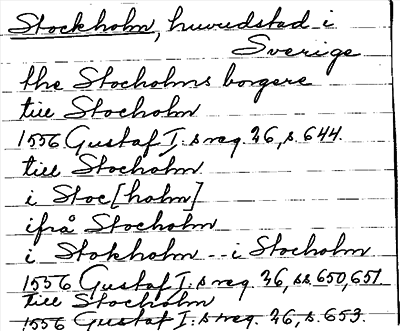 Stockholm, huvudstad i
Sverige
the Stocholms borgere
till Stocholm
1556 Gustaf I:s reg. 26, s. 644.
till Stocholm
i Stoc[holm]
ifrå Stocholm
i Stokholm -- i Stocholm
1556 Gustaf I:s reg. 26, ss. 650, 651
till Stocholm
1556 Gustaf I:s reg. 26, s. 653.